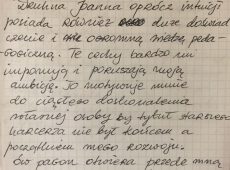 Druhna Joanna oprócz intuicji
posiada również duże doświad
czenie i ogromną wiedzę peda-
gogiczną. Te cechy bardzo mi
imponują i poruszają moją
ambicję. To motywuje mnie
do ciągłego doskonalenia
własnej osoby by tytuł
harcerza nie był końcem a
początkiem mego rozwoju.
bo pagon otwiera przede mną